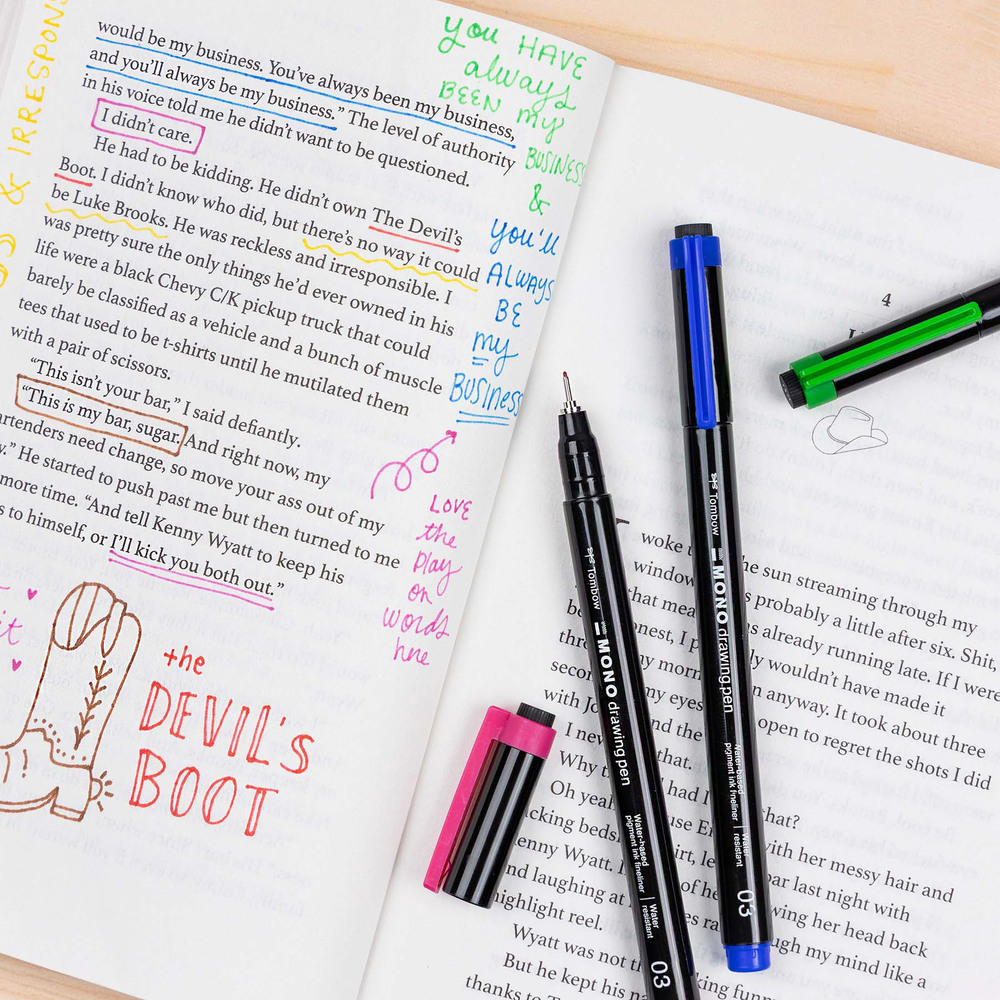 & IRRESPONS
would be my business. You've always been my business,
and you'll always be my business." The level of authority
in his voice told me he didn't want to be questioned.
I didn't care.
He had to be kidding. He didn't own The Devil's
Boot. I didn't know who did, but there's no way it could
be Luke Brooks. He was reckless and irresponsible. I
was pretty sure the only things he'd ever owned in his
life were a black Chevy C/K pickup truck that could
barely be classified as a vehicle and a bunch of muscle
tees that used to be t-shirts until he mutilated them
with a pair of scissors.
"This isn't your bar," I said defiantly.
"This is my bar, sugar. And right now, my
artenders need change, so move your ass out of my
." He started to push past me but then turned to me
more time. "And tell Kenny Wyatt to keep his
s to himself, or I'll kick you both out."
you HAVE
always
BEEN my
BUSINESS
&
you'll
ALWAYS
BE
my
BUSINESS
LOVE
the
play
on
words
here
it
the
DEVIL'S
BOOT
4
woke the sun streaming through my
window probably a little after six. Shit,
that mea already running late. If I were
onest, I p ly wouldn't have made it
thr my morn n anyway. It took about three
secon my eyes open to regret the shots I did
with Jo nd the
I nev that.
Why t had I that?
Oh yea use E with her messy hair and
cking beds, irt, le bar last night with
enny Wyatt. of he wing her head back
nd laughing at es ra ugh my mind like a
highlight reel.
Wyatt was not th king funny
But he kept his
thanks to
Tombow
MONO drawing pen
Water-based
pigment ink fineliner
Water
resistant
03
Tombow
MONO drawing pen
Water-based
pigment ink fineliner
Water
resistant
03